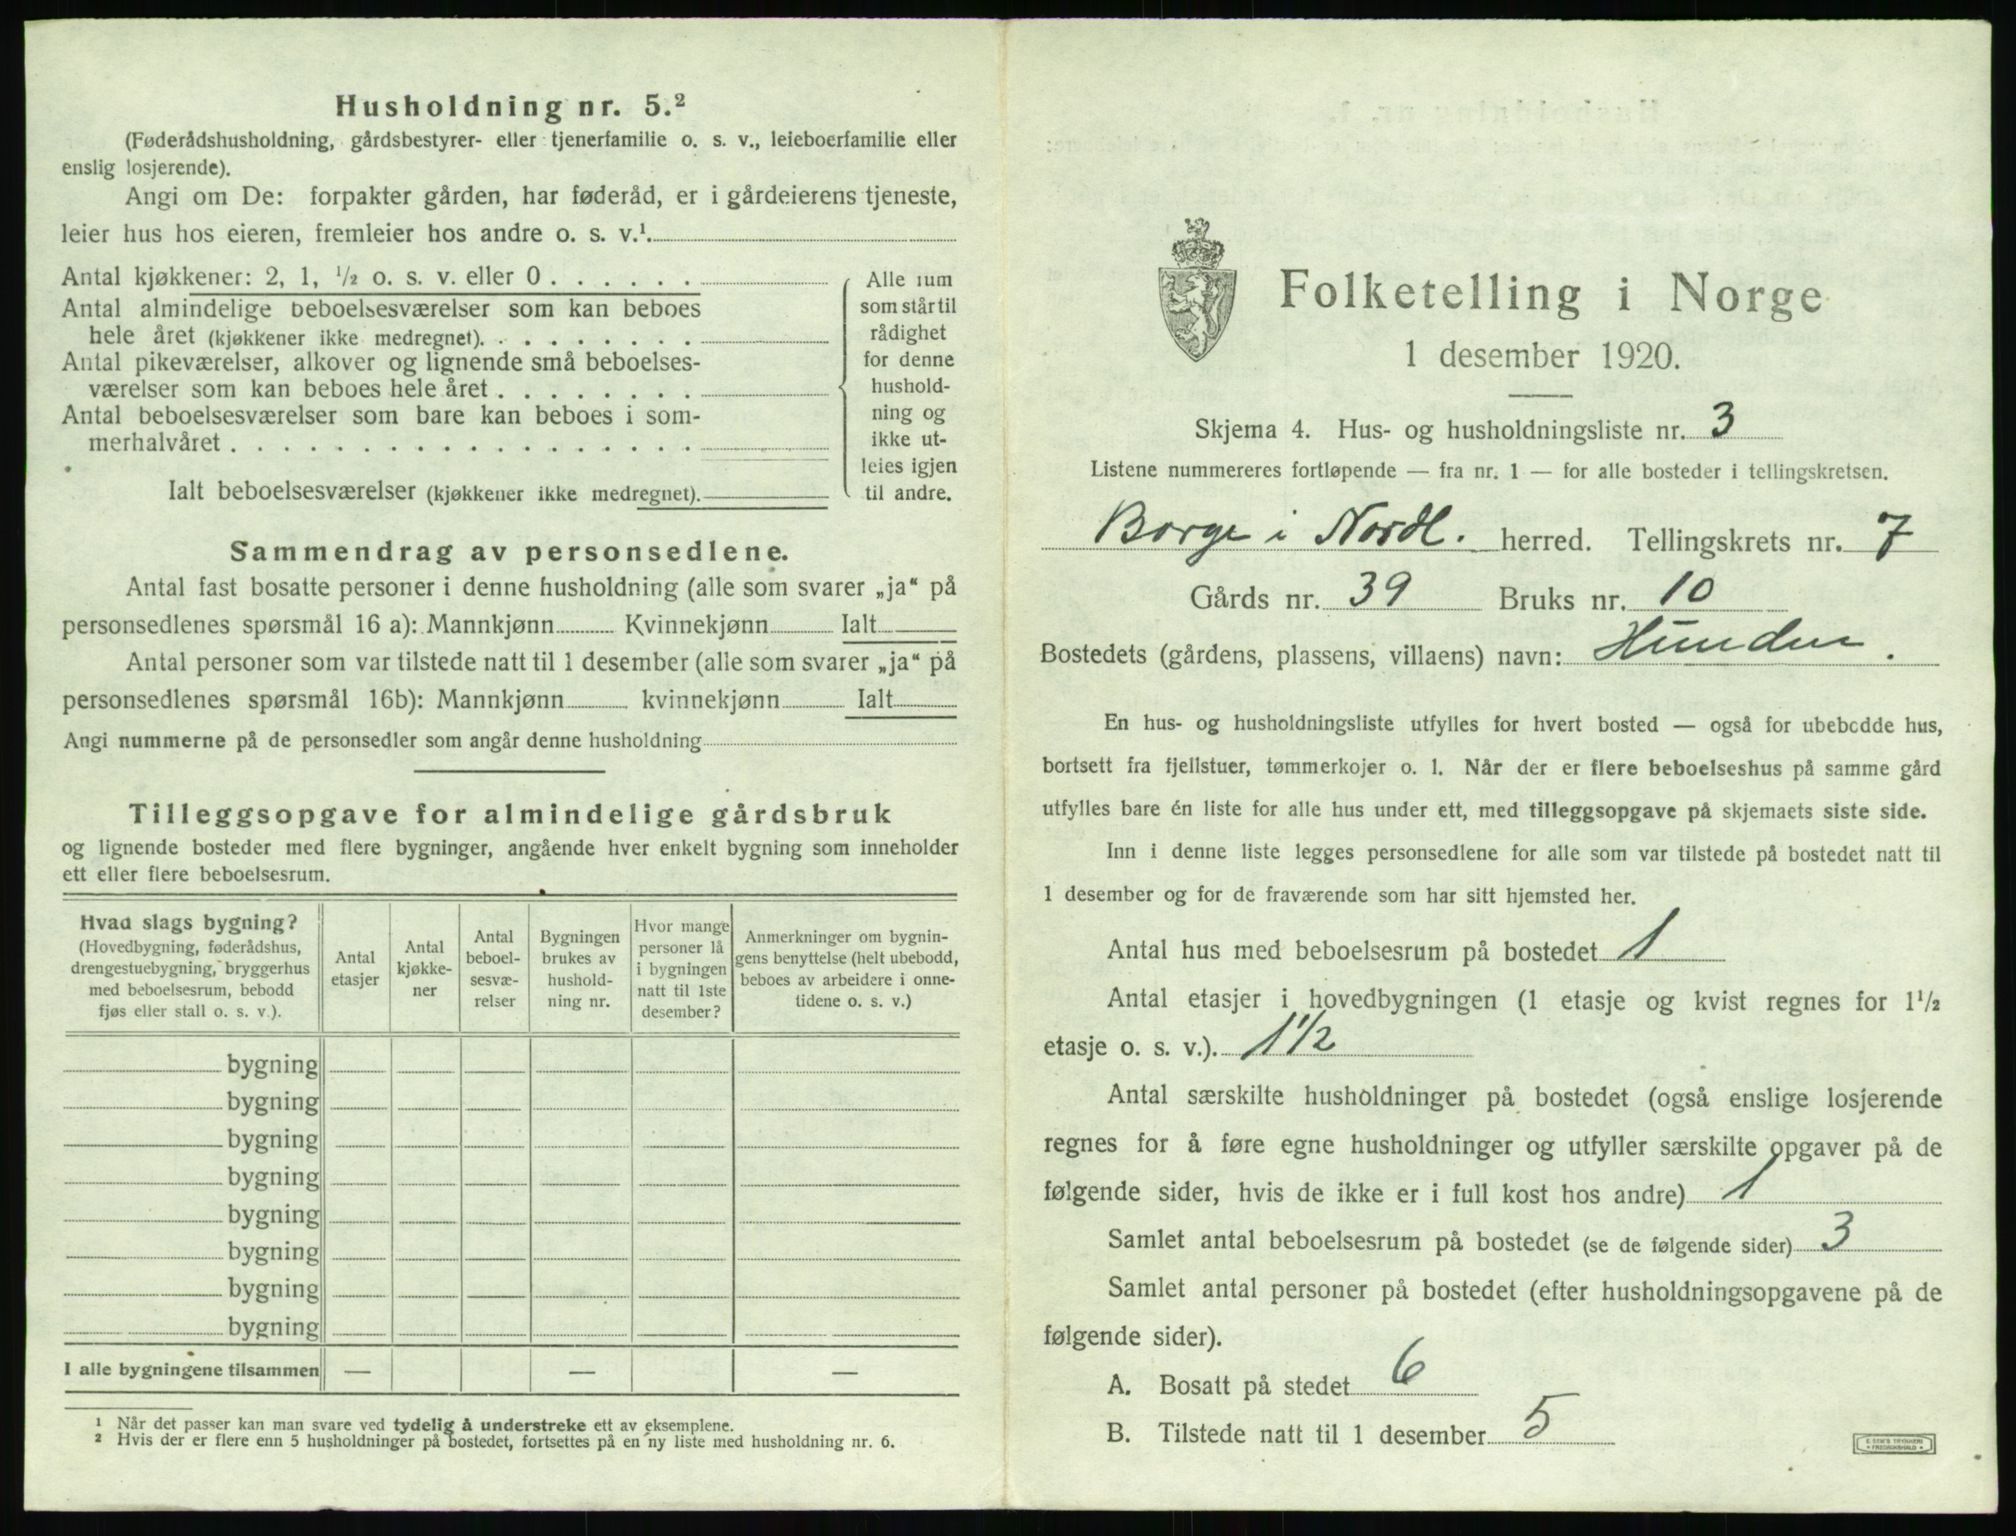 Husholdning nr. 5.²
(Føderådshusholdning, gårdsbestyrer- eller tjenerfamilie o. s. v., leieboerfamilie eller
enslig losjerende).
Angi om De: forpakter gården, har føderåd, er i gårdeierens tjeneste,
leier hus hos eieren, fremleier hos andre o. s. v.¹
Antal kjøkkener: 2, 1, ½ o. s. v. eller 0 . . . . . .
Antal almindelige beboelsesværelser som kan beboes
hele året (kjøkkener ikke medregnet). . . . . . . . .
Antal pikeværelser, alkover og lignende små beboelses-
værelser som kan beboes hele året . . . . . . . .
Antal beboelsesværelser som bare kan beboes i som-
merhalvåret . . . . . . . . . . . . . . . . . .
Ialt beboelsesværelser (kjøkkener ikke medregnet).
Alle rum
som står til
rådighet
for denne
hushold-
ning og
ikke ut-
leies igjen
til andre.
Sammendrag av personsedlene.
Antal fast bosatte personer i denne husholdning (alle som svarer „ja“ på
personsedlenes spørsmål 16 a): Mannkjønn Kvinnekjønn Ialt
Antal personer som var tilstede natt til 1 desember (alle som svarer „ja“ på
personsedlenes spørsmål 16b): Mannkjønn kvinnekjønn Ialt
Angi nummerne på de personsedler som angår denne husholdning
Tilleggsopgave for almindelige gårdsbruk
og lignende bosteder med flere bygninger, angående hver enkelt bygning som inneholder
ett eller flere beboelsesrum.
Hvad slags bygning?
(Hovedbygning, føderådshus,
drengestuebygning, bryggerhus
med beboelsesrum, bebodd
fjøs eller stall o. s. v.).
Antal
etasjer
Antal
kjøkke-
ner
Antal
beboel-
sesvæ-
relser
Bygningen
brukes av
hushold-
ning nr.
Hvor mange
personer lå
i bygningen
natt til 1ste
desember?
Anmerkninger om bygnin-
gens benyttelse (helt ubebodd,
beboes av arbeidere i onne-
tidene o. s. v.)
bygning
bygning
bygning
bygning
bygning
bygning
bygning
bygning
I alle bygningene tilsammen — — —
¹ Når det passer kan man svare ved tydelig å understreke ett av eksemplene.
² Hvis der er flere enn 5 husholdninger på bostedet, fortsettes på en ny liste med husholdning nr. 6.
Folketelling i Norge
1 desember 1920.
Skjema 4. Hus- og husholdningsliste nr. 3
Listene nummereres fortløpende — fra nr. 1 — for alle bosteder i tellingskretsen.
Borge i Nordl. herred. Tellingskrets nr. 7
Gårds nr. 39 Bruks nr. 10
Bostedets (gårdens, plassens, villaens) navn: Hunden.
En hus- og husholdningsliste utfylles for hvert bosted — også for ubebodde hus,
bortsett fra fjellstuer, tømmerkojer o. l. Når der er flere beboelseshus på samme gård
utfylles bare én liste for alle hus under ett, med tilleggsopgave på skjemaets siste side.
Inn i denne liste legges personsedlene for alle som var tilstede på bostedet natt til
1 desember og for de fraværende som har sitt hjemsted her.
Antal hus med beboelsesrum på bostedet 1
Antal etasjer i hovedbygningen (1 etasje og kvist regnes for 1½
etasje o. s. v.). 1½
Antal særskilte husholdninger på bostedet (også enslige losjerende
regnes for å føre egne husholdninger og utfyller særskilte opgaver på de
følgende sider, hvis de ikke er i full kost hos andre) 1
Samlet antal beboelsesrum på bostedet (se de følgende sider) 3
Samlet antal personer på bostedet (efter husholdningsopgavene på de
følgende sider).
A. Bosatt på stedet 6
B. Tilstede natt til 1 desember 5
E. SEM'S TRYKKERI
• FREDRIKSHALD •